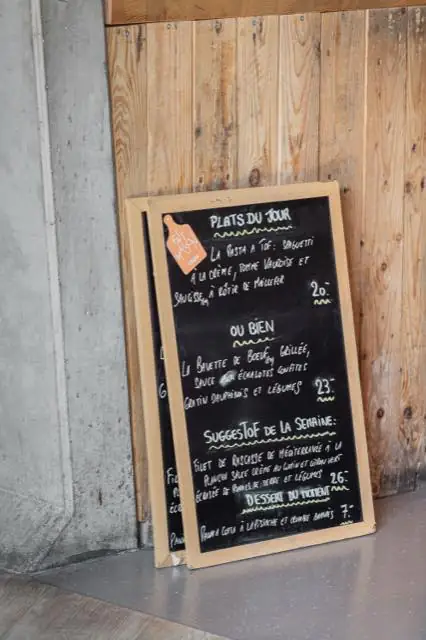 PLATS DU JOUR
LA PASTA A TOF: SPAGUETTI
A LA CRÈME, TOMME VAUDOISE ET
SAUCISSON À RÔTIR DE
20.-
OU BIEN
LA BAVETTE DE BOEUF GRILLÉE,
SAUCE ÉCHALOTES CONFITES
GRATIN DAUPHINOIS ET LÉGUMES
23.-
SUGGESTOF DE LA SEMAINE:
FILET DE RASCASSE DE MÉDITERRANÉE À LA
PLANCHA SAUCE CRÈME AU ET CITRON VERT
ÉCRASÉE DE POMMES DE TERRE ET LÉGUMES
26.-
DESSERT DU MOMENT
PANNA COTTA À LA PISTACHE ET CRUMBLE
7.-